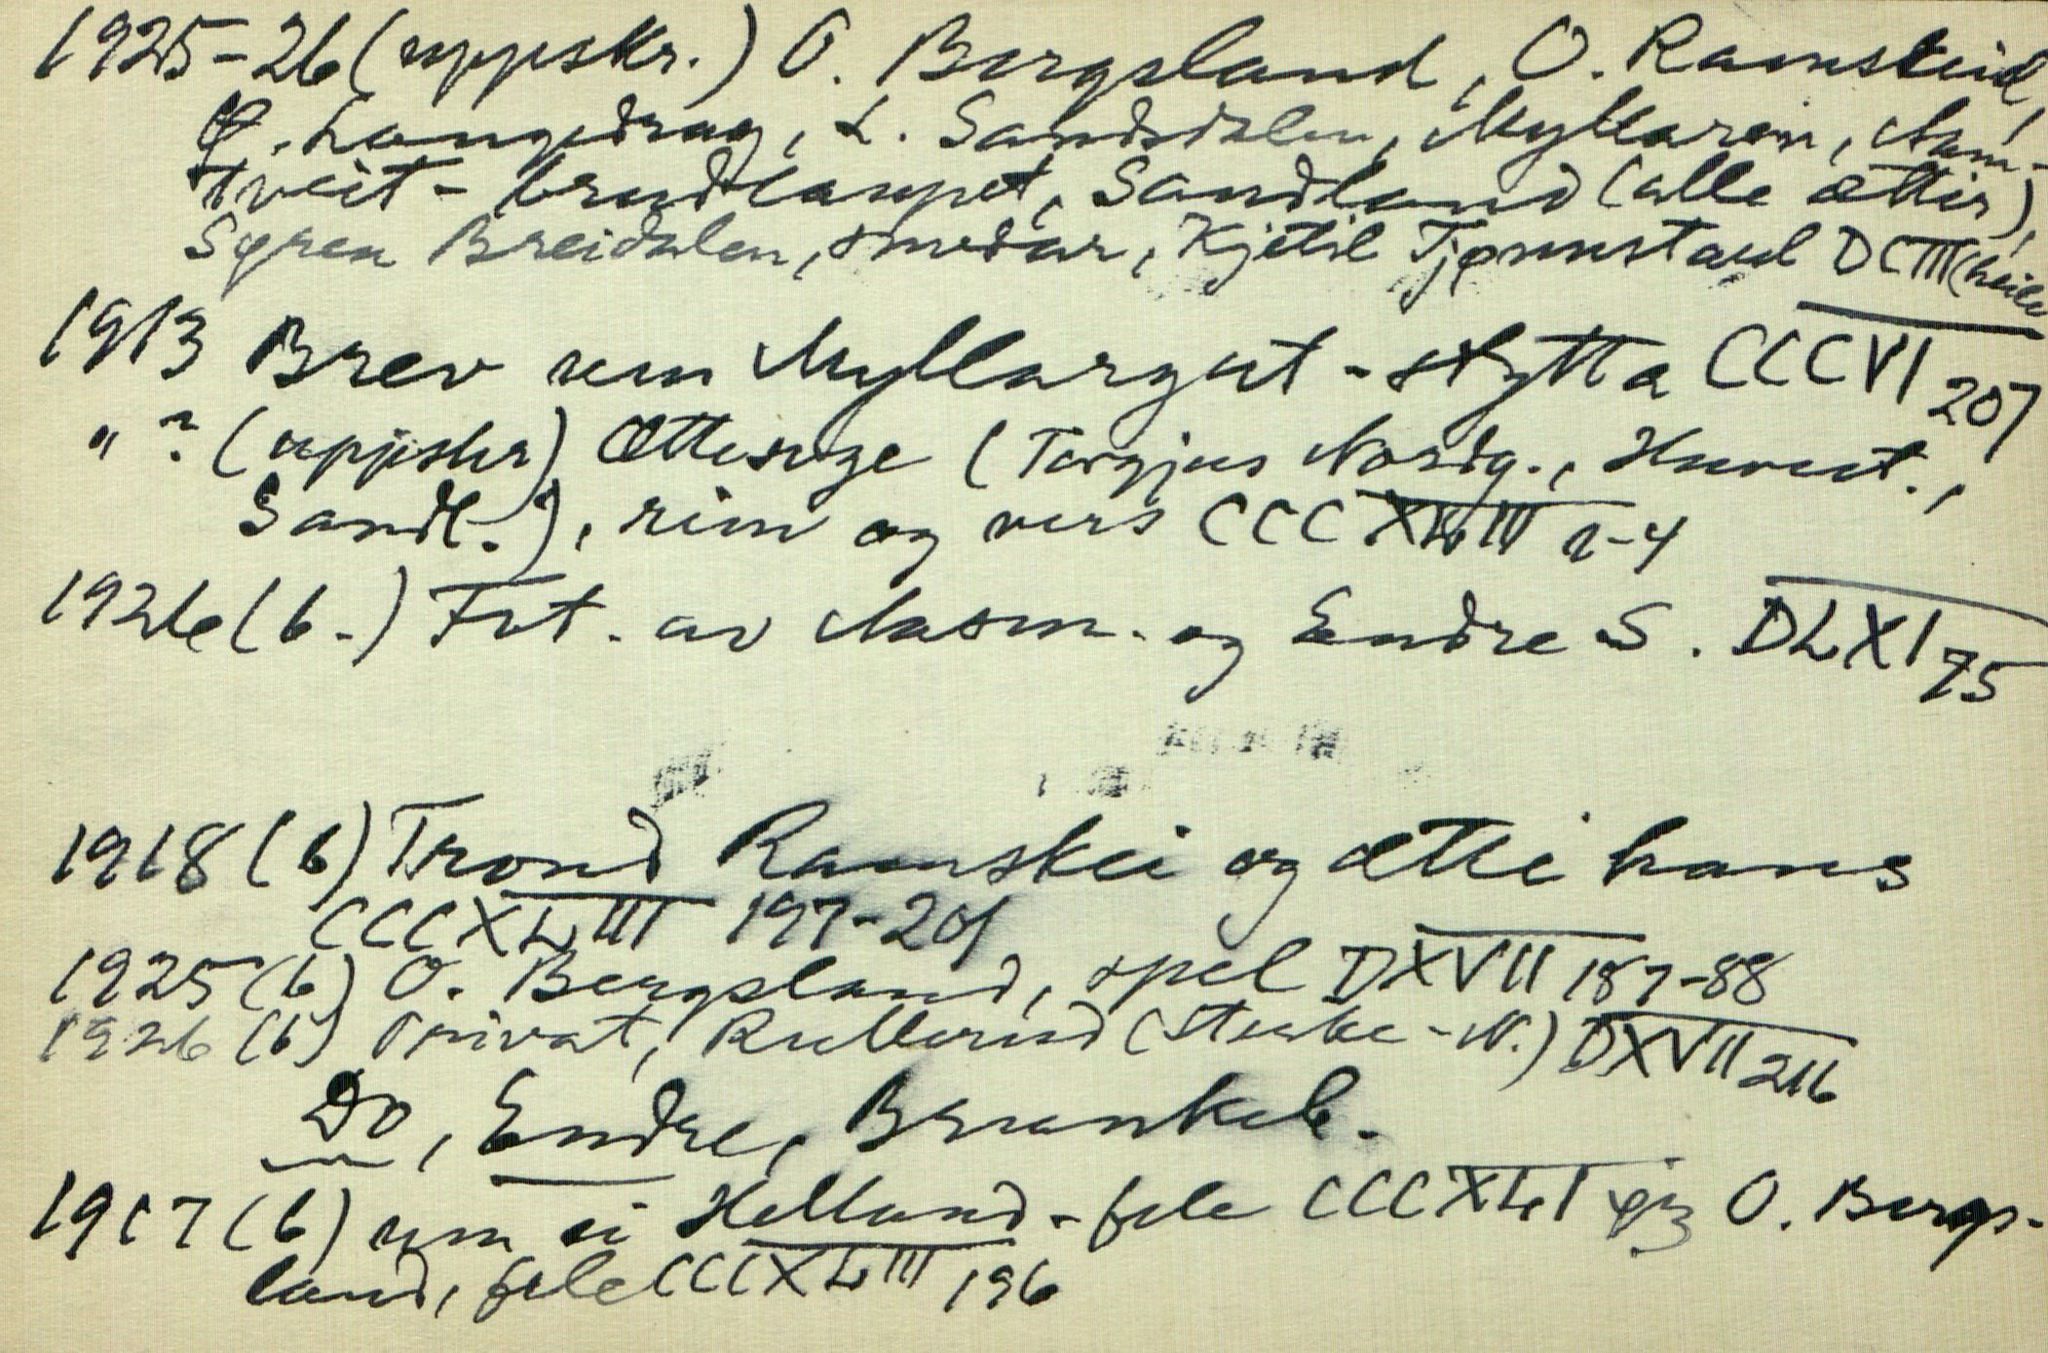 1925-26 (uppskr.) O. Bergsland, O. Ramskeid,
Ø. Langedrag, L. Sandsdalen, Myllaren, Aam-
tveit-brudlaupet, Sandland (alle ætter),
Syren Breidalen, smedar, Kjetil Tjønnstaul DCIII (heile
1913 Brev um Myllargut-stytta CCCVI 207
" ? (uppskr) Ættesoge (Torgjus Nordg., Huvest.,
Sandl.?), rim og vers CCCXLIII 2-4
1926 (b.) Fot. av Aasm. og Endre S. DLXI 75
1918 (b) Trond Ramskei og ætti hans
CCCXLIII 197-201
1925 (b) O. Bergsland, spel DXVII 187-88
1926 (b) Privat, Rullerud (Sterke-N.) DXVII 216
Do, Endre, Brunkeb.
1917 (b) um ei Helland-fele CCCXLI O. Bergs-
land, fele CCCXLIII 196